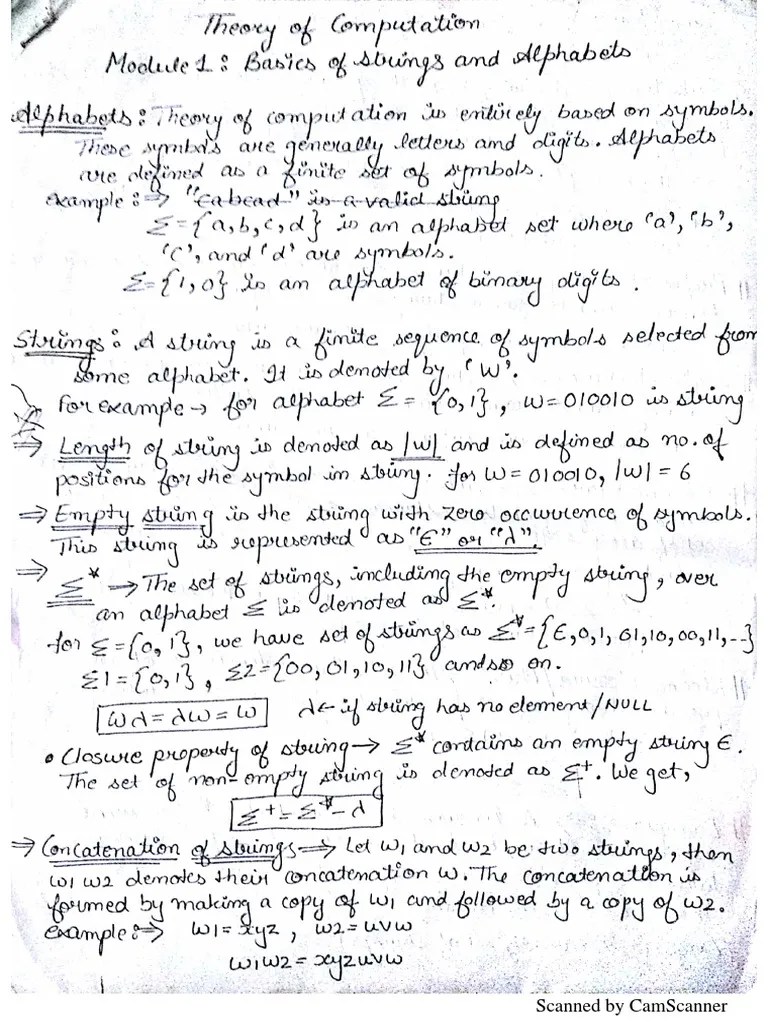 Theory of Computation
Module 1: Basics of strings and Alphabets
Alphabets: Theory of computation is entirely based on symbols.
These symbols are generally letters and digits. Alphabets
are defined as a finite set of symbols.
example :⇒ "cabead" is a valid string
Σ = {a,b,c,d} is an alphabet set where 'a', 'b',
'c', and 'd' are symbols.
Σ = {1,0} is an alphabet of binary digits .
Strings: A string is a finite sequence of symbols selected from
some alphabet. It is denoted by 'W'.
For example → for alphabet Σ = {0,1}, w = 010010 is string
⇒ Length of string is denoted as |w| and is defined as no. of
positions for the symbol in string. for w = 010010, |w| = 6
⇒ Empty string is the string with zero occurrence of symbols.
This string is represented as "ϵ" or "λ".
⇒ Σ* → The set of strings, including the empty string, over
an alphabet Σ is denoted as Σ*.
for Σ={0,1}, we have set of strings as Σ*={ϵ,0,1,01,10,00,11,--}
Σ1 = {0,1}, Σ2={00,01,10,11} and so on.
wλ = λw = w λ ← if string has no element/NULL
• Closure property of string → Σ* contains an empty string ϵ.
The set of non-empty string is denoted as Σ+. We get,
Σ+ = Σ* - λ
⇒ Concatenation of strings → Let w1 and w2 be two strings, then
w1 w2 denotes their concatenation w. The concatenation is
formed by making a copy of w1 and followed by a copy of w2.
example:→ w1 = xyz , w2 = uvw
w1w2 = xyzuvw
Scanned by CamScanner